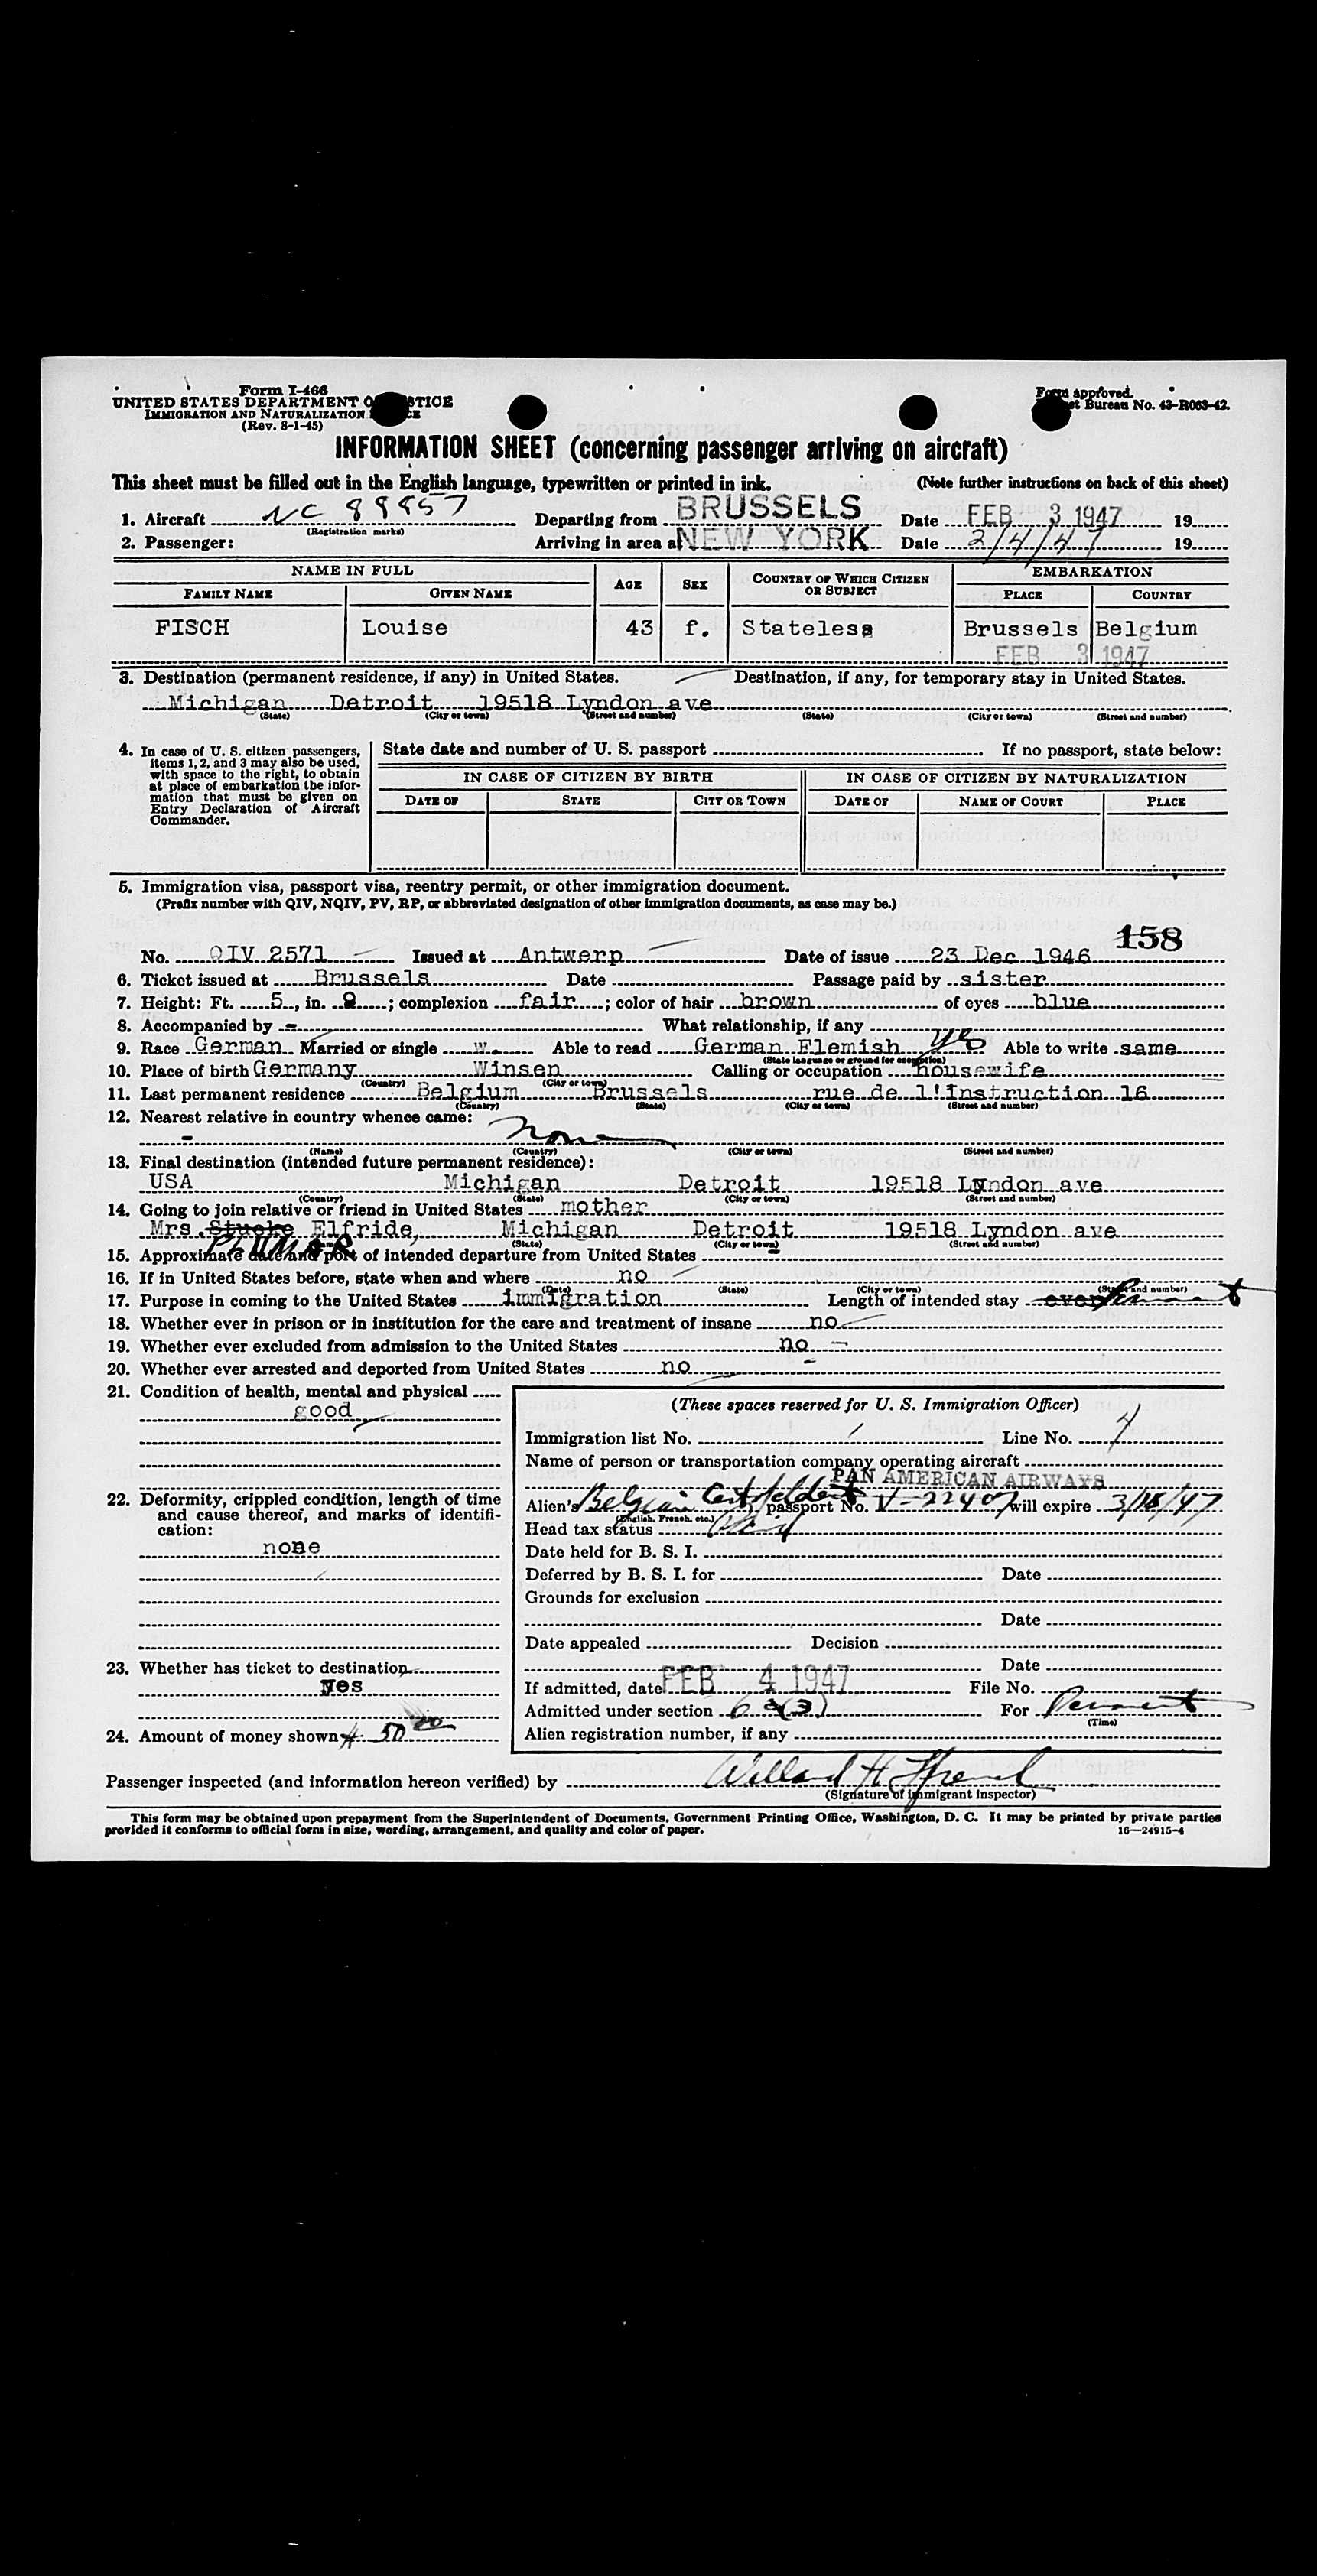 Form I-466
UNITED STATES DEPARTMENT O STICE
IMMIGRATION AND NATURALIZATION CE
(Rev. 8-1-45)
Form approved.
et Bureau No. 43-R063-42.
INFORMATION SHEET (concerning passenger arriving on aircraft)
This sheet must be filled out in the English language, typewritten or printed in ink. (Note further instructions on back of this sheet)
1. Aircraft NC 88857 Departing from BRUSSELS Date FEB 3 1947 19
(Registration marks)
2. Passenger: Arriving in area at NEW YORK Date 2/4/47 19
NAME IN FULL AGE SEX COUNTRY OF WHICH CITIZEN OR SUBJECT EMBARKATION
FAMILY NAME GIVEN NAME PLACE COUNTRY
FISCH Louise 43 f. Stateless Brussels Belgium
FEB 3 1947
3. Destination (permanent residence, if any) in United States. Destination, if any, for temporary stay in United States.
Michigan Detroit 19518 Lyndon ave
(State) (City or town) (Street and number) (State) (City or town) (Street and number)
4. In case of U. S. citizen passengers, items 1, 2, and 3 may also be used, with space to the right, to obtain at place of embarkation the information that must be given on Entry Declaration of Aircraft Commander.
State date and number of U. S. passport If no passport, state below:
IN CASE OF CITIZEN BY BIRTH IN CASE OF CITIZEN BY NATURALIZATION
DATE OF STATE CITY OR TOWN DATE OF NAME OF COURT PLACE
5. Immigration visa, passport visa, reentry permit, or other immigration document.
(Prefix number with QIV, NQIV, PV, RP, or abbreviated designation of other immigration documents, as case may be.)
158
No. QIV 2571 Issued at Antwerp Date of issue 23 Dec 1946
6. Ticket issued at Brussels Date Passage paid by sister
7. Height: Ft. 5, in. 8; complexion fair; color of hair brown of eyes blue
8. Accompanied by - What relationship, if any
9. Race German Married or single w. Able to read German Flemish yes Able to write same
(State language or ground for exemption)
10. Place of birth Germany Winsen Calling or occupation housewife
(Country) (City or town)
11. Last permanent residence Belgium Brussels rue de l'Instruction 16
(Country) (State) (City or town) (Street and number)
12. Nearest relative in country whence came:
- None
(Name) (Country) (City or town) (Street and number)
13. Final destination (intended future permanent residence):
USA Michigan Detroit 19518 Lyndon ave
(Country) (State) (City or town) (Street and number)
14. Going to join relative or friend in United States mother
Mrs. Stucke Elfride, Michigan Detroit 19518 Lyndon ave
PLUMER (State) (City or town) (Street and number)
15. Approximate date and port of intended departure from United States -
16. If in United States before, state when and where no
(Date) (State) (City or town) (Street and number)
17. Purpose in coming to the United States immigration Length of intended stay ever Permanent
18. Whether ever in prison or in institution for the care and treatment of insane no
19. Whether ever excluded from admission to the United States no
20. Whether ever arrested and deported from United States no
21. Condition of health, mental and physical
good
22. Deformity, crippled condition, length of time and cause thereof, and marks of identification:
none
23. Whether has ticket to destination
yes
24. Amount of money shown $ 50 00
(These spaces reserved for U. S. Immigration Officer)
Immigration list No. 1 Line No. 4
Name of person or transportation company operating aircraft
PAN AMERICAN AIRWAYS
Alien's Belgian Cert of Ident passport No. V-22407 will expire 3/18/47
(English, French, etc.)
Head tax status Paid
Date held for B. S. I.
Deferred by B. S. I. for Date
Grounds for exclusion
Date
Date appealed Decision
Date
If admitted, date FEB 4 1947 File No.
Admitted under section 6 a(3) For Permanent
(Time)
Alien registration number, if any
Passenger inspected (and information hereon verified) by Willard H.
(Signature of immigrant inspector)
This form may be obtained upon prepayment from the Superintendent of Documents, Government Printing Office, Washington, D. C. It may be printed by private parties
provided it conforms to official form in size, wording, arrangement, and quality and color of paper. 16—24915-4